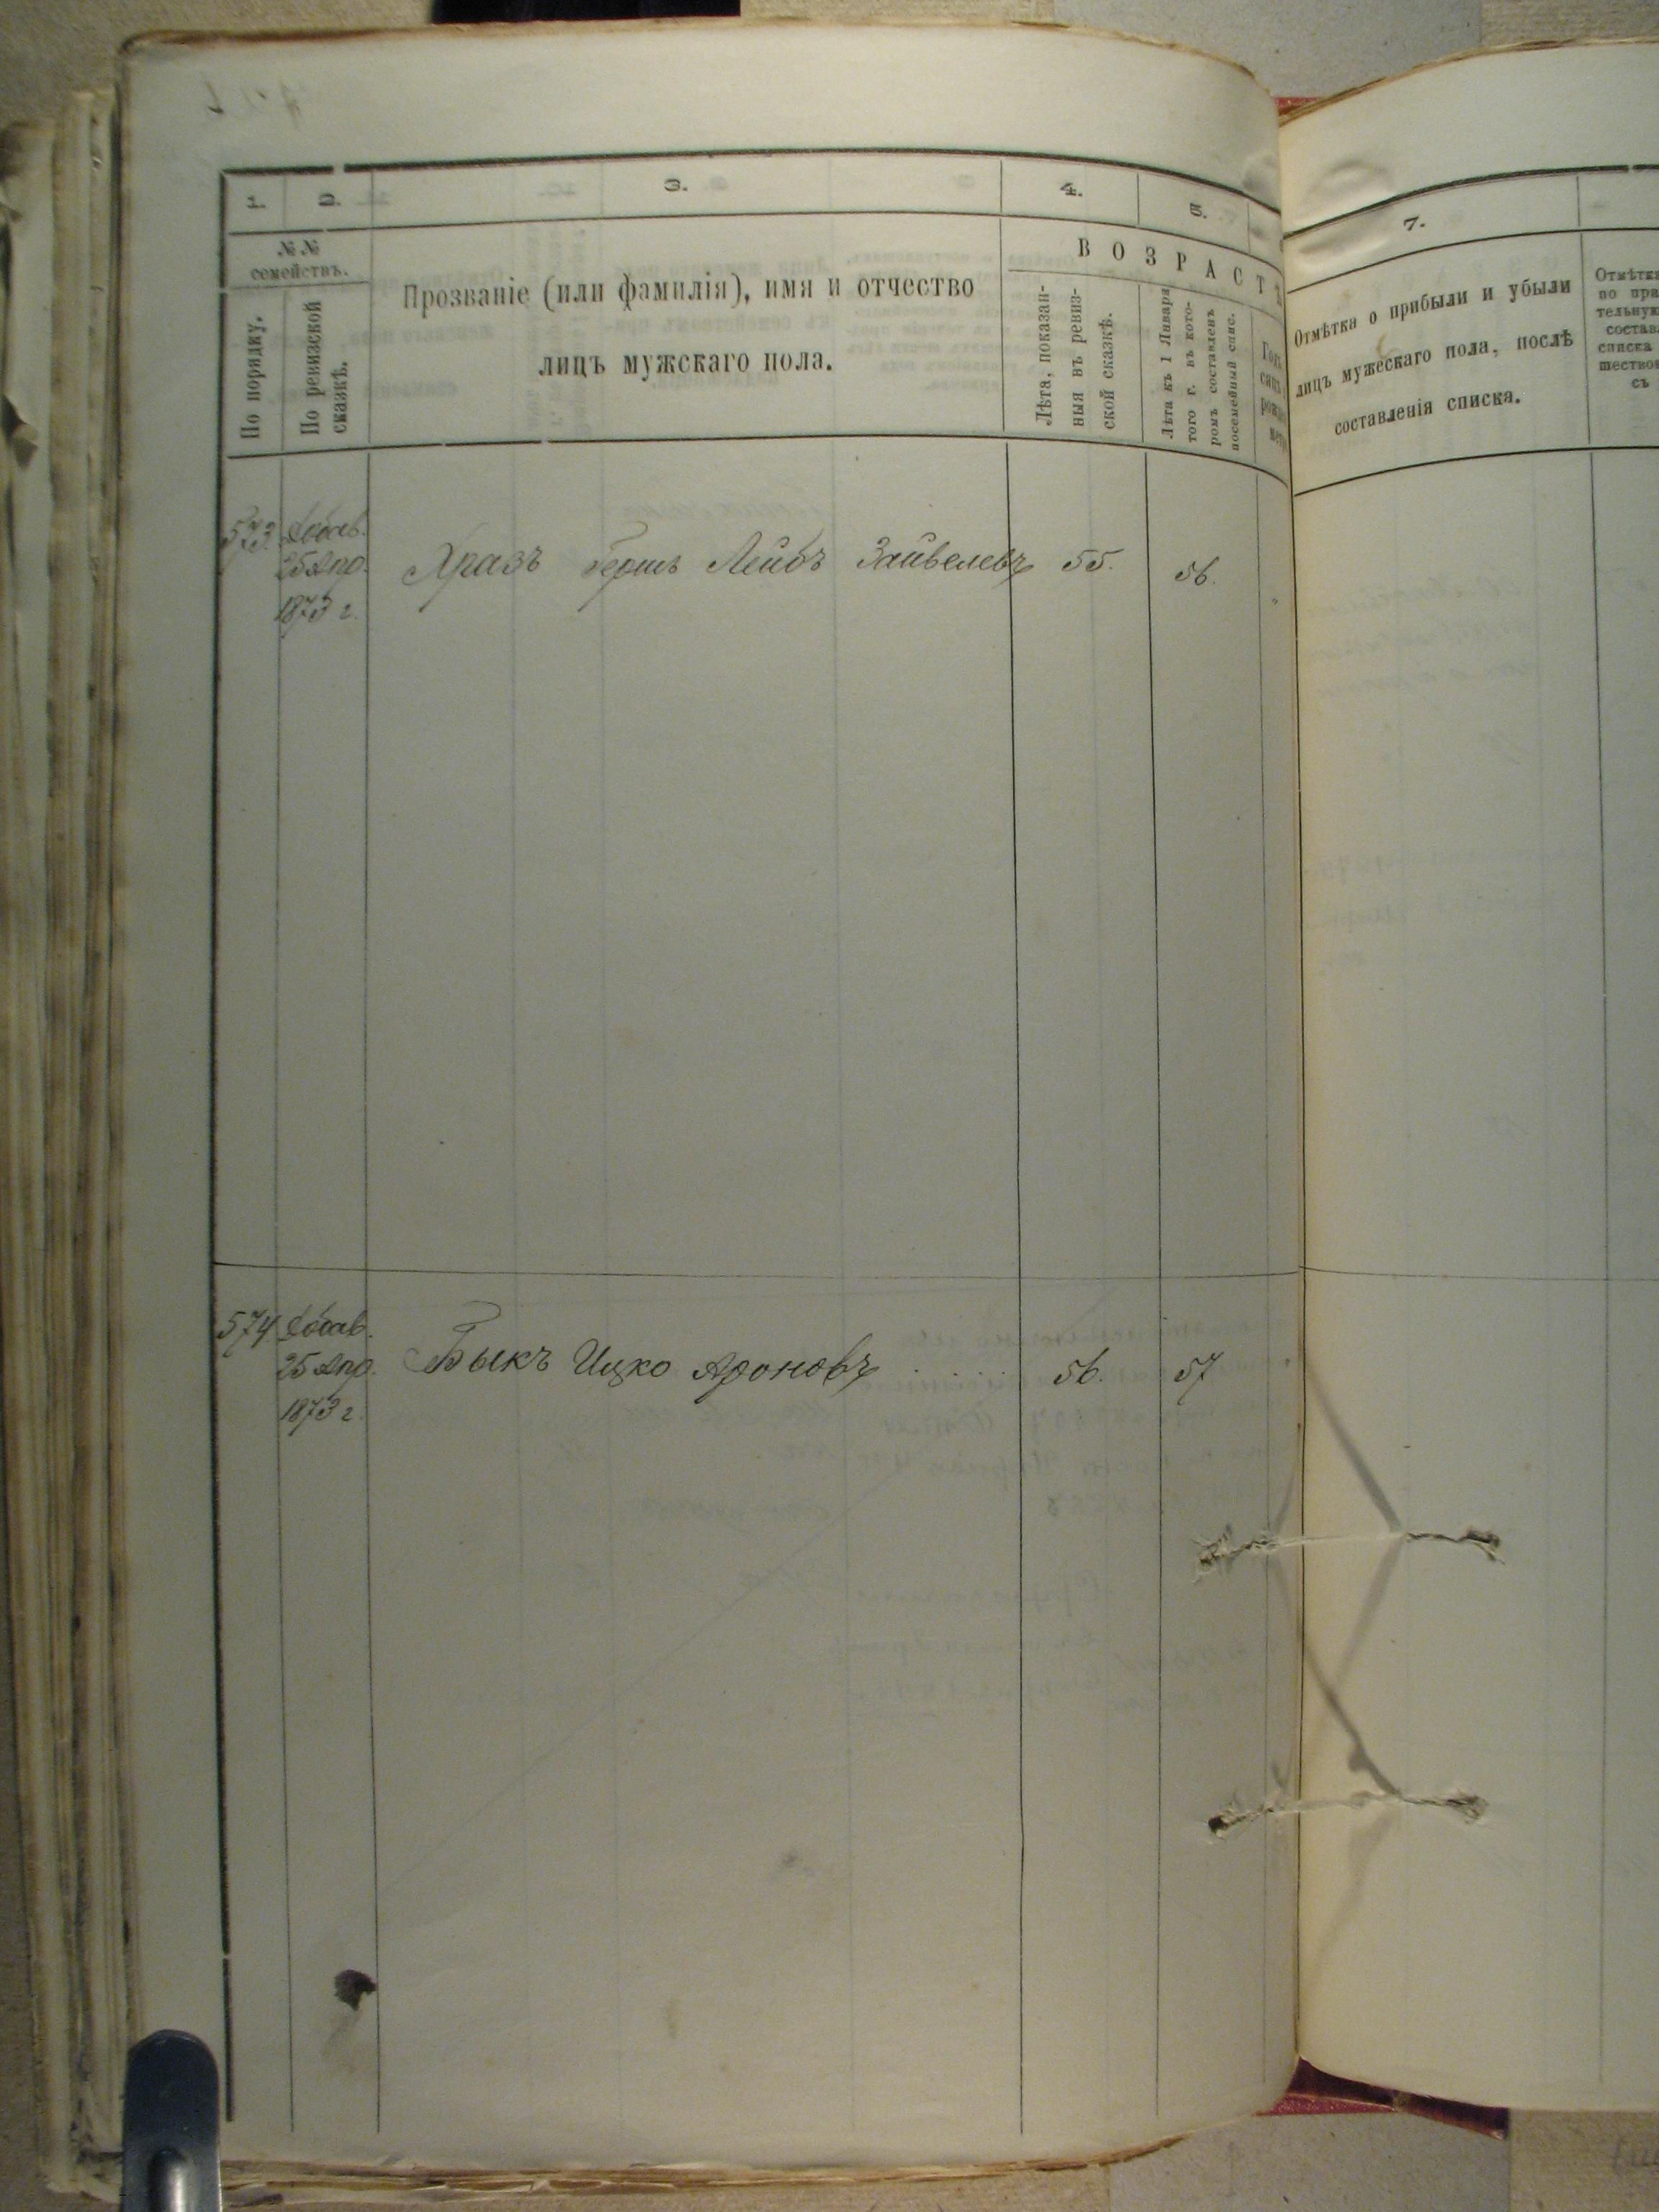 1.
2.
3.
4.
5.
№№ семействъ.
По порядку.
По ревизской
сказкѣ.
Прозваніе (или фамилія), имя и отчество
лицъ мужскаго пола.
ВОЗРАСТЪ
Лѣта, показан-
ныя въ ревиз-
ской сказкѣ.
Лѣта къ 1 Января
того г. въ кото-
ромъ составленъ
посемейный спис.
7.
Отмѣтка о прибыли и убыли
лицъ мужескаго пола, послѣ
составленія списка.
573. Добав.
25 Апр.
1873 г.
Гершъ Лейбъ Зайвелевъ 55. 56.
574. Добав.
25 Апр.
1873 г.
Быкъ Ицко Ароновъ 56. 57